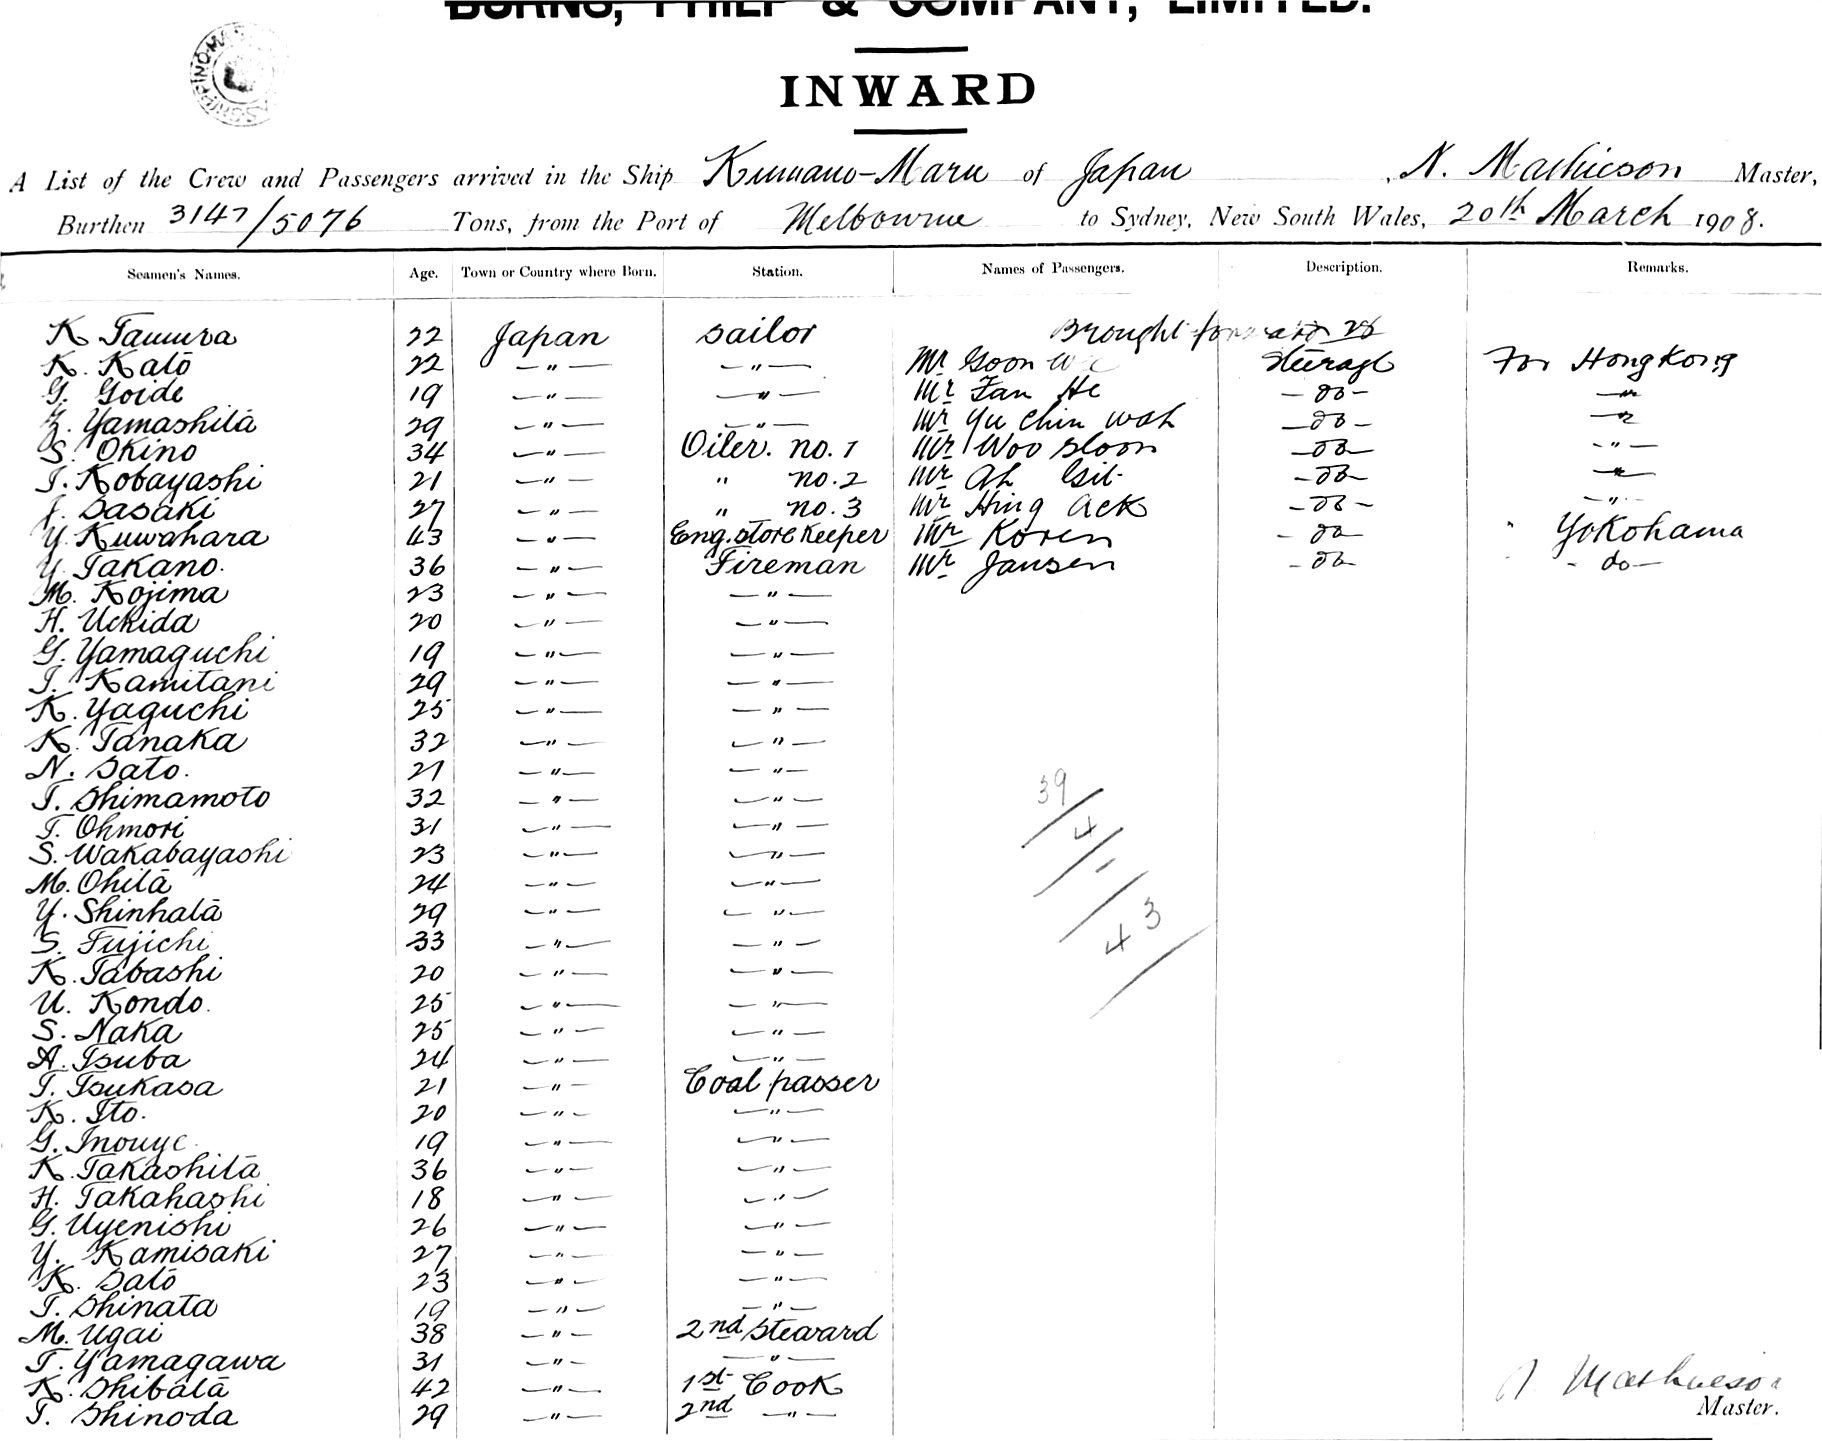 BURNS, PHILP & COMPANY, LIMITED.
INWARD
A List of the Crew and Passengers arrived in the Ship Kumano-Maru of Japan, N. Mathieson Master,
Burthen 3147/5076 Tons, from the Port of Melbourne to Sydney, New South Wales, 20th March 1908.
Seamen's Names. Age. Town or Country where Born. Station. Names of Passengers. Description. Remarks.
K Tamura 22 Japan sailor Brought forward 28
K. Kato 22 — " — — " — Mr Goon Steerage For HongKong
G. Goide 19 — " — — " — Mr Fan He — do — — " —
Z. Yamashita 29 — " — — " — Mr Yu Chin Wah — do — — " —
S. Okino 34 — " — Oiler. no. 1 Mr Woo Sloon — do — - " —
T. Kobayashi 21 — " — " no. 2 Mr Ah Git — do — — " —
J. Sasaki 27 — " — " no. 3 Mr Hing Ack — do — — " —
Y. Kuwahara 43 — " — Eng. store Keeper Mr Koren — do — " Yokohama
Y. Takano. 36 — " — Fireman Mr Jansen — do — - do —
M. Kojima 23 — " — — " —
H. Uchida 20 — " — — " —
G. Yamaguchi 19 — " — — " —
T. Kamitani 29 — " — — " —
K. Yaguchi 25 — " — — " —
K. Tanaka 32 — " — — " —
N. Sato. 21 — " — — " —
T. Shimamoto 32 — " — — " —
T. Ohmori 31 — " — — " —
S. Wakabayashi 23 — " — — " —
M. Ohita 24 — " — — " —
Y. Shinhata 29 — " — — " —
S. Fujichi 33 — " — — " —
K. Tabashi 20 — " — — " —
U. Kondo. 25 — " — — " —
S. Naka 25 — " — — " —
A. Tsuba 24 — " — — " —
T. Tsukasa 21 — " — Coal passer
K. Ito. 20 — " — — " —
G. Inouye. 19 — " — — " —
K. Takashita 36 — " — — " —
H. Takahashi 18 — " — — " —
G. Uyenishi 26 — " — — " —
Y. Kamisaki 27 — " — — " —
K. Sato 23 — " — — " —
T. Shinata 19 — " — — " —
M. Ugai 38 — " — 2nd Steward
T. Yamagawa 31 — " — — " —
K. Shibata 42 — " — 1st Cook
T. Shinoda 29 — " — 2nd — " —
39/
4/
1/
43/
Mathieson
Master.